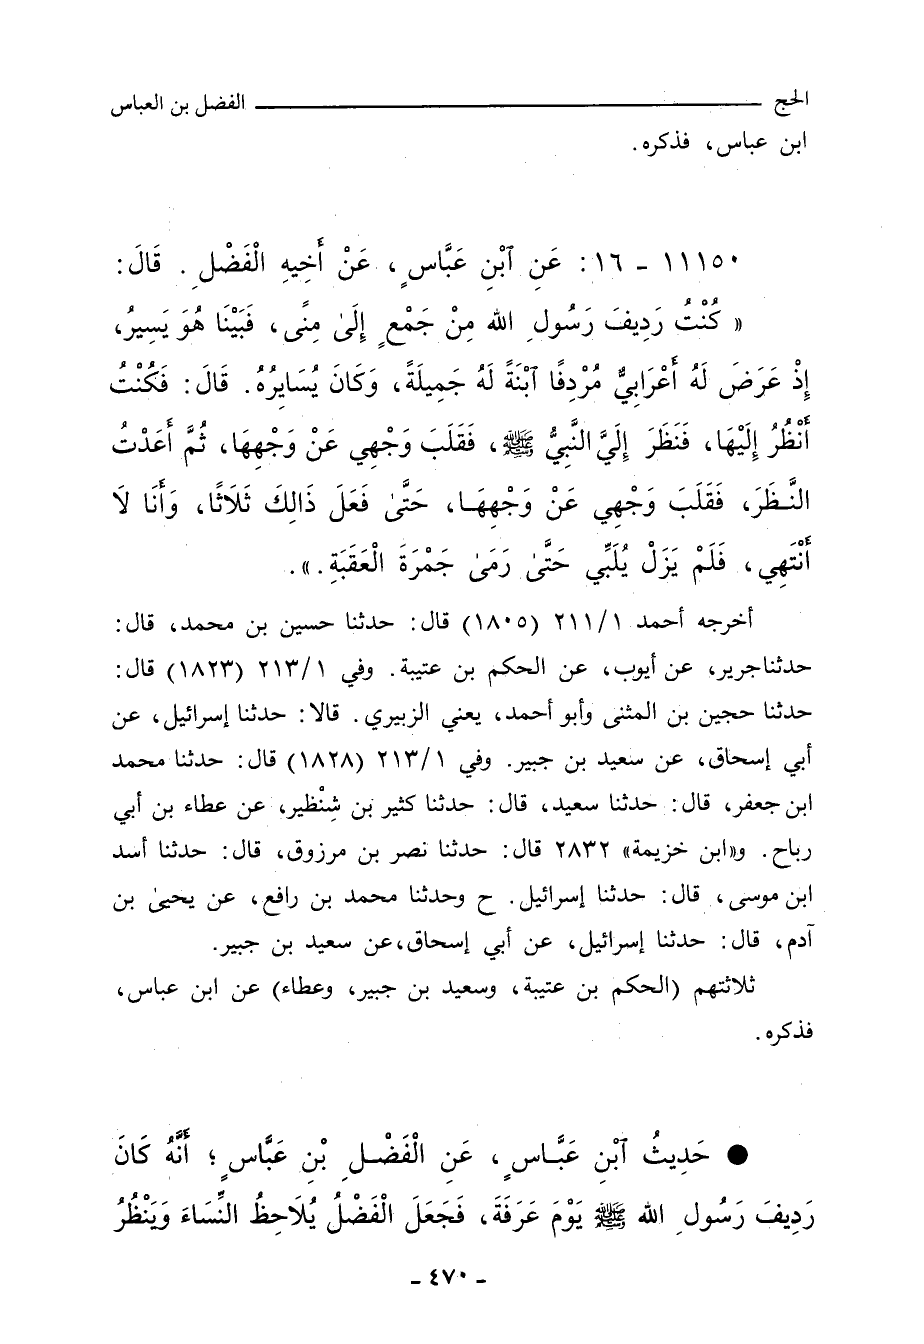 الحج ــــــــــــــــــــ الفضل بن العباس
ابن عباس، فذكره.
١١١٥٠ - ١٦: عَنِ ٱبْنِ عَبَّاسٍ، عَنْ أَخِيهِ الْفَضْلِ. قَالَ:
« كُنْتُ رَدِيفَ رَسُولِ الله مِنْ جَمْعٍ إِلَىٰ مِنًى، فَبَيْنَا هُوَ يَسِيرُ،
إِذْ عَرَضَ لَهُ أَعْرَابِيٌّ مُرْدِفًا ٱبْنَةً لَهُ جَمِيلَةً، وَكَانَ يُسَايِرُهُ. قَالَ: فَكُنْتُ
أَنْظُرُ إِلَيْهَا، فَنَظَرَ إِلَيَّ النَّبِيُّ ﷺ، فَقَلَبَ وَجْهِي عَنْ وَجْهِهَا، ثُمَّ أَعَدْتُ
النَّظَرَ، فَقَلَبَ وَجْهِي عَنْ وَجْهِهَا، حَتَّىٰ فَعَلَ ذَالِكَ ثَلَاثًا، وَأَنَا لَا
أَنْتَهِي، فَلَمْ يَزَلْ يُلَبِّي حَتَّىٰ رَمَىٰ جَمْرَةَ الْعَقَبَةِ.».
أخرجه أحمد ٢١١/١ (١٨٠٥) قال: حدثنا حسين بن محمد، قال:
حدثنا جرير، عن أيوب، عن الحكم بن عتيبة. وفي ٢١٣/١ (١٨٢٣) قال:
حدثنا حجين بن المثنى وأبو أحمد، يعني الزبيري. قالا: حدثنا إسرائيل، عن
أبي إسحاق، عن سعيد بن جبير. وفي ٢١٣/١ (١٨٢٨) قال: حدثنا محمد
ابن جعفر، قال: حدثنا سعيد، قال: حدثنا كثير بن شِنْظير، عن عطاء بن أبي
رباح. و«ابن خزيمة» ٢٨٣٢ قال: حدثنا نصر بن مرزوق، قال: حدثنا أسد
ابن موسى، قال: حدثنا إسرائيل. ح وحدثنا محمد بن رافع، عن يحيىٰ بن
آدم، قال: حدثنا إسرائيل، عن أبي إسحاق، عن سعيد بن جبير.
ثلاثتهم (الحكم بن عتيبة، وسعيد بن جبير، وعطاء) عن ابن عباس،
فذكره.
● حَدِيثُ ٱبْنِ عَبَّاسٍ، عَنِ الْفَضْلِ بْنِ عَبَّاسٍ؛ أَنَّهُ كَانَ
رَدِيفَ رَسُولِ الله ﷺ يَوْمَ عَرَفَةَ، فَجَعَلَ الْفَضْلُ يُلَاحِظُ النِّسَاءَ وَيَنْظُرُ
- ٤٧٠ -